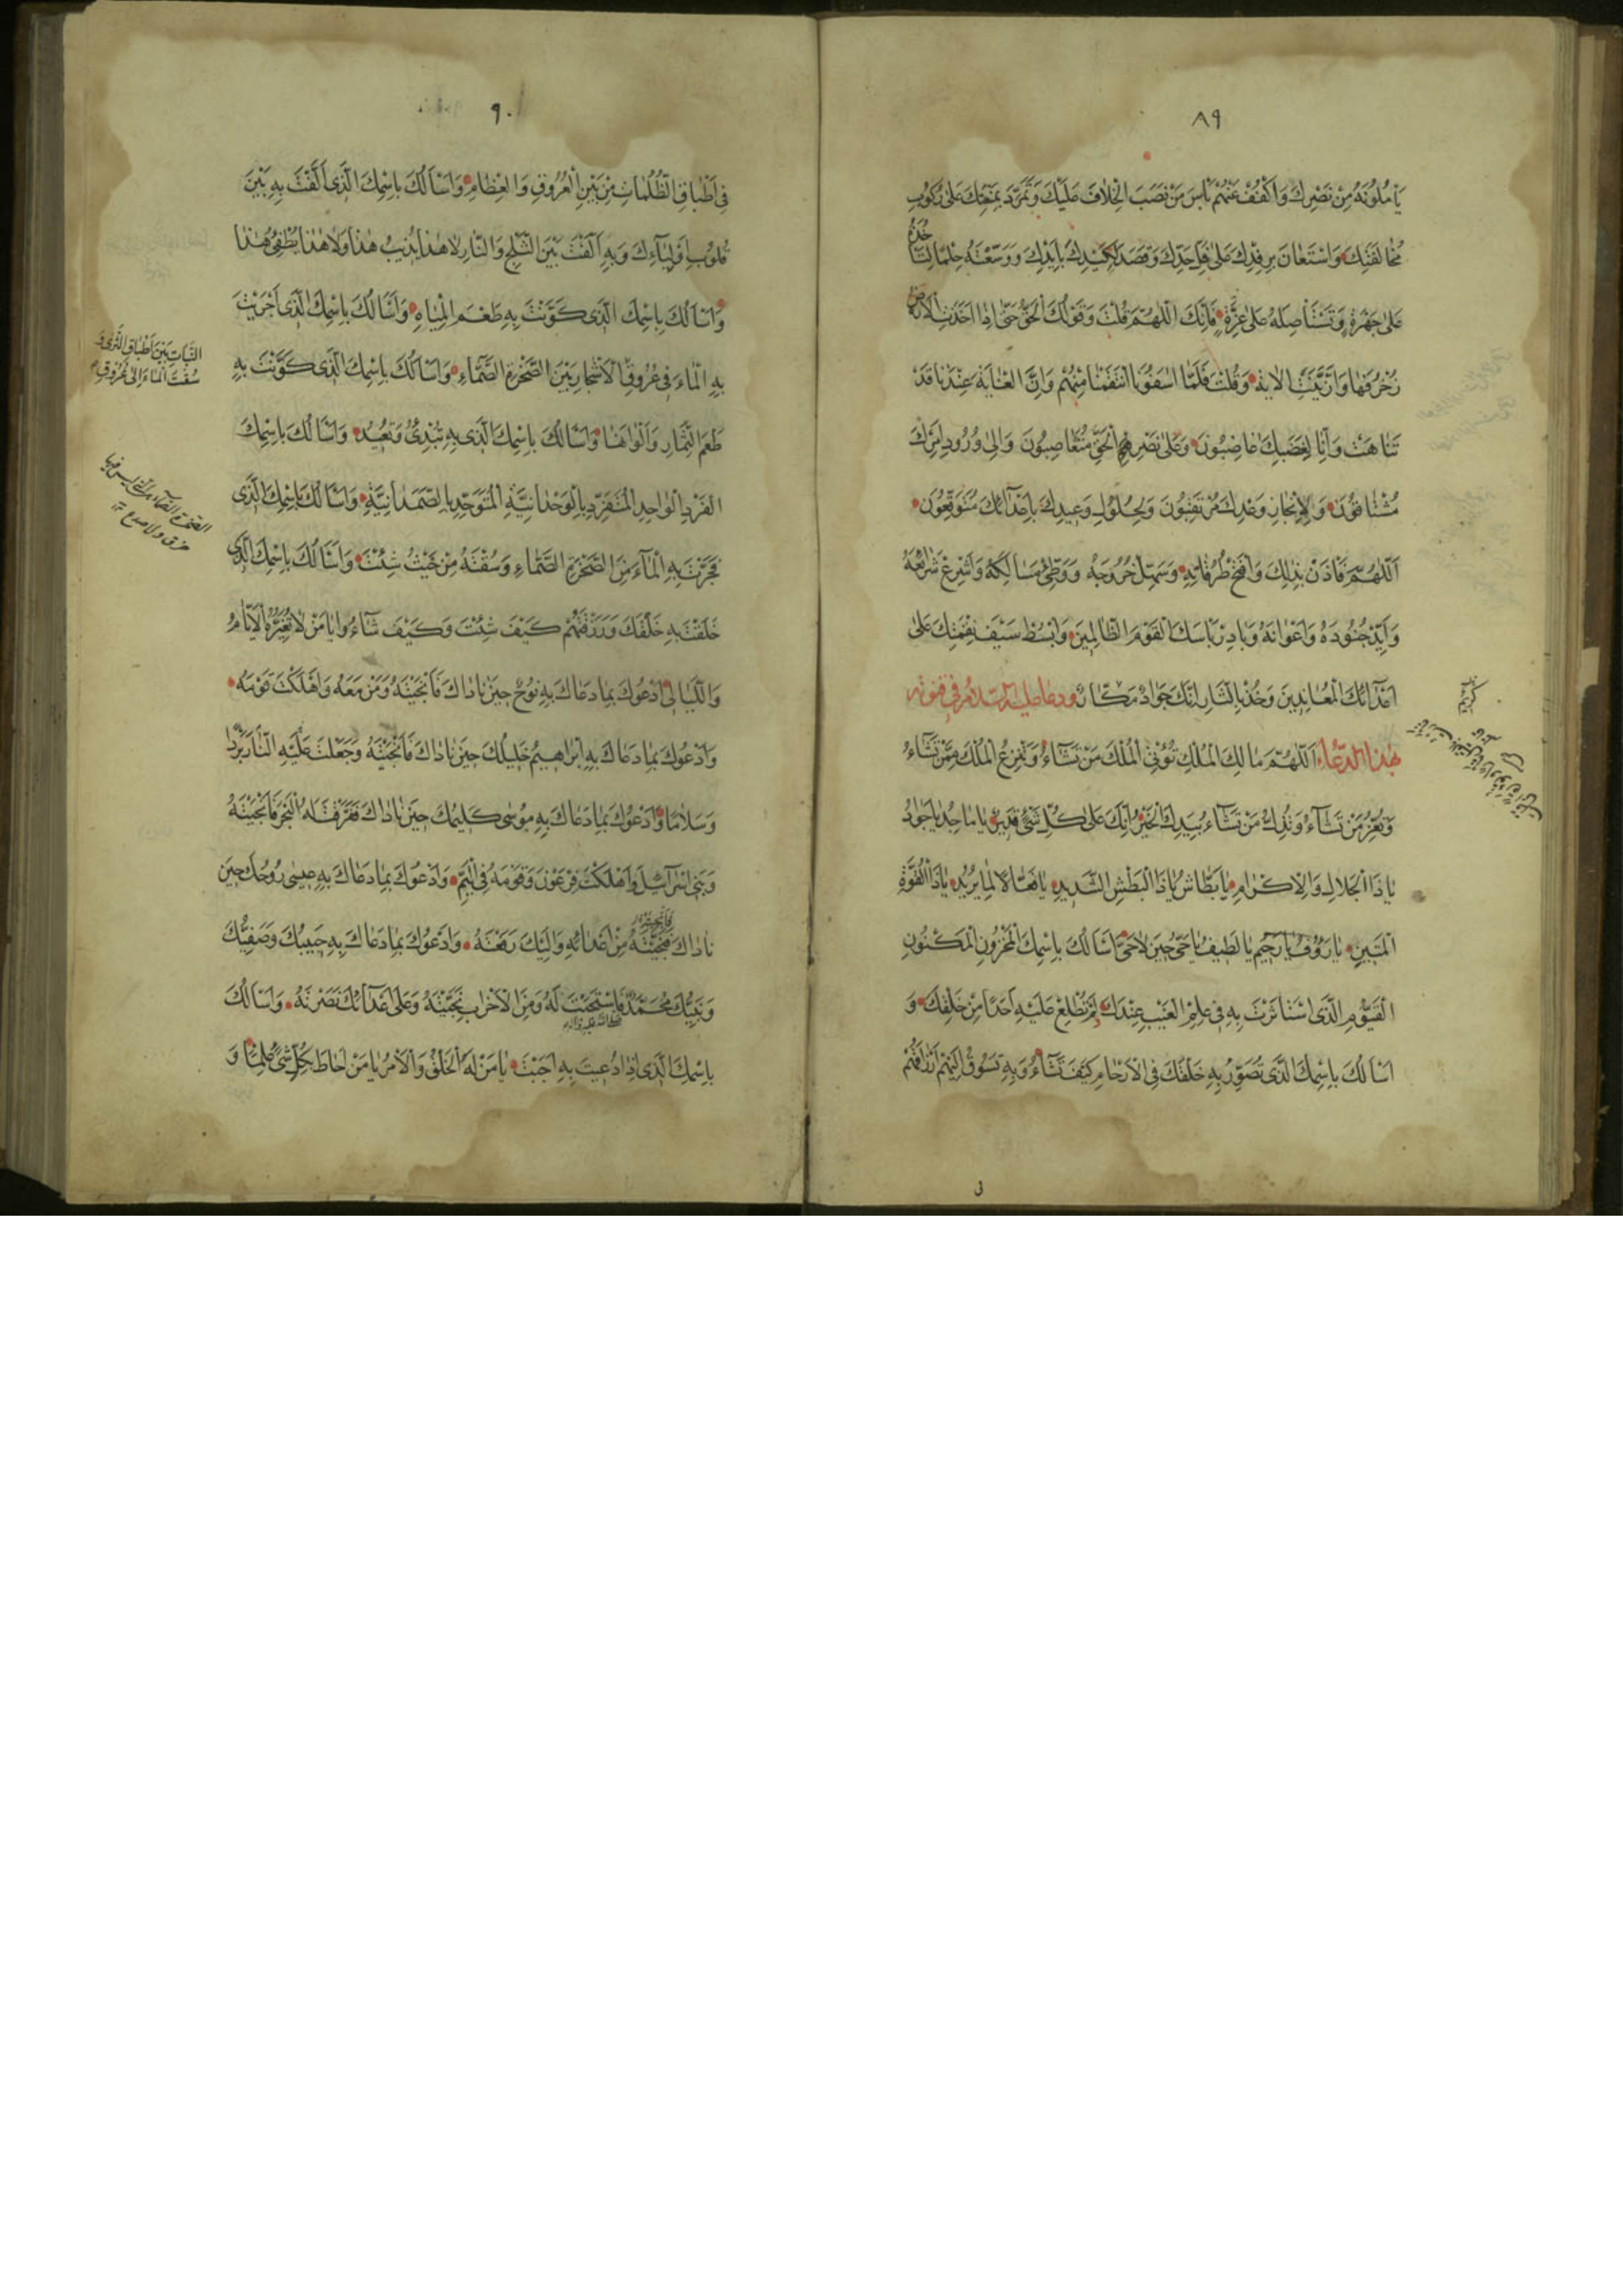 ٨٩
يَأْمُلُونَهُ مِنْ نَصْرِكَ وَاكْفُفْ عَنْهُمْ بَأْسَ مَنْ نَصَبَ الْخِلَافَ عَلَيْكَ وَتَمَرَّدَ بِمَنْعِكَ عَلَى رُكُوبِ
مُخَالَفَتِكَ وَاسْتَعَانَ بِرِفْدِكَ عَلَى فَلِّ حَدِّكَ وَقَصَدَ لِكَيْدِكَ بِأَيْدِكَ وَوَسِعْتَهُ حِلْمًا لِتَأْخُذَهُ
عَلَى جَهْرَةٍ وَتَسْتَأْصِلَهُ عَلَى عِزَّةٍ فَإِنَّكَ اللَّهُمَّ قُلْتَ وَقَوْلُكَ الْحَقُّ حَتَّى إِذَا أَخَذَتِ الْأَرْضُ
زُخْرُفَهَا وَازَّيَّنَتْ الْآيَةَ وَقُلْتَ فَلَمَّا آسَفُونَا انْتَقَمْنَا مِنْهُمْ وَإِنَّ الْغَايَةَ عِنْدَنَا قَدْ
تَنَاهَتْ وَإِنَّا لِغَضَبِكَ غَاضِبُونَ وَعَلَى نَصْرِ الْحَقِّ مُتَعَاصِبُونَ وَإِلَى وُرُودِ أَمْرِكَ
مُشْتَاقُونَ وَلِإِنْجَازِ وَعْدِكَ مُرْتَقِبُونَ وَلِحُلُولِ وَعِيدِكَ بِأَعْدَائِكَ مُتَوَقِّعُونَ
اَللَّهُمَّ فَأْذَنْ بِذَلِكَ وَافْتَحْ طُرُقَاتِهِ وَسَهِّلْ خُرُوجَهُ وَوَطِّئْ مَسَالِكَهُ وَأَشْرِعْ شَرَائِعَهُ
وَأَيِّدْ جُنُودَهُ وَأَعْوَانَهُ وَبَادِرْ بَأْسَكَ الْقَوْمَ الظَّالِمِينَ وَابْسُطْ سَيْفَ نِقْمَتِكَ عَلَى
أَعْدَائِكَ الْمُعَانِدِينَ وَخُذْ بِالثَّارِ إِنَّكَ جَوَادٌ مَكَّارٌ ودعا عليه السلام في قنوته
بهذا الدعاء اَللَّهُمَّ مَالِكَ الْمُلْكِ تُؤْتِي الْمُلْكَ مَنْ تَشَاءُ وَتَنْزِعُ الْمُلْكَ مِمَّنْ تَشَاءُ
وَتُعِزُّ مَنْ تَشَاءُ وَتُذِلُّ مَنْ تَشَاءُ بِيَدِكَ الْخَيْرُ إِنَّكَ عَلَى كُلِّ شَيْءٍ قَدِيرٌ يَا مَاجِدُ يَا جَوَادُ
يَا ذَا الْجَلَالِ وَالْإِكْرَامِ يَا بَطَّاشُ يَا ذَا الْبَطْشِ الشَّدِيدِ يَا فَعَّالًا لِمَا يُرِيدُ يَا ذَا الْقُوَّةِ
الْمَتِينِ يَا رَؤُوفُ يَا رَحِيمُ يَا لَطِيفُ يَا حَيُّ حِينَ لَا حَيَّ أَسْأَلُكَ بِاسْمِكَ الْمَخْزُونِ الْمَكْنُونِ
الْقَيُّومِ الَّذِي اسْتَأْثَرْتَ بِهِ فِي عِلْمِ الْغَيْبِ عِنْدَكَ لَمْ تُطْلِعْ عَلَيْهِ أَحَدًا مِنْ خَلْقِكَ وَ
أَسْأَلُكَ بِاسْمِكَ الَّذِي تُصَوِّرُ بِهِ خَلْقَكَ فِي الْأَرْحَامِ كَيْفَ تَشَاءُ وَبِهِ تَسُوقُ إِلَيْهِمْ أَرْزَاقَهُمْ
٩٠
فِي أَطْبَاقِ الظُّلُمَاتِ مِنْ بَيْنِ الْعُرُوقِ وَالْعِظَامِ وَأَسْأَلُكَ بِاسْمِكَ الَّذِي أَلَّفْتَ بِهِ بَيْنَ
قُلُوبِ أَوْلِيَائِكَ وَبِهِ أَلَّفْتَ بَيْنَ الثَّلْجِ وَالنَّارِ لَا هَذَا يُذِيبُ هَذَا وَلَا هَذَا يُطْفِئُ هَذَا
وَأَسْأَلُكَ بِاسْمِكَ الَّذِي كَوَّنْتَ بِهِ طَعْمَ الْمِيَاهِ وَأَسْأَلُكَ بِاسْمِكَ الَّذِي أَجْرَيْتَ
بِهِ الْمَاءَ فِي عُرُوقِ الْأَشْجَارِ بَيْنَ الصَّخْرَةِ الصَّمَّاءِ وَأَسْأَلُكَ بِاسْمِكَ الَّذِي كَوَّنْتَ بِهِ
النَّبَاتِ بَيْنَ أَطْبَاقِ الثَّرَى وَ
سُقْتَ الْمَاءَ إِلَى عُرُوقِ
طَعْمَ الثِّمَارِ وَأَلْوَانَهَا وَأَسْأَلُكَ بِاسْمِكَ الَّذِي بِهِ تُبْدِئُ وَتُعِيدُ وَأَسْأَلُكَ بِاسْمِكَ
الْفَرْدِ الْوَاحِدِ الْمُتَفَرِّدِ بِالْوَحْدَانِيَّةِ الْمُتَوَحِّدِ بِالصَّمَدَانِيَّةِ وَأَسْأَلُكَ بِاسْمِكَ الَّذِي
الصخرة الصماء التي ليس فيها
خرق ولا صدع
فَجَّرْتَ بِهِ الْمَاءَ مِنَ الصَّخْرَةِ الصَّمَّاءِ وَسُقْتَهُ مِنْ حَيْثُ شِئْتَ وَأَسْأَلُكَ بِاسْمِكَ الَّذِي
خَلَقْتَ بِهِ خَلْقَكَ وَرَزَقْتَهُمْ كَيْفَ شِئْتَ وَكَيْفَ شَاءُوا يَا مَنْ لَا تُغَيِّرُهُ الْأَيَّامُ
وَاللَّيَالِي أَدْعُوكَ بِمَا دَعَاكَ بِهِ نُوحٌ حِينَ نَادَاكَ فَأَنْجَيْتَهُ وَمَنْ مَعَهُ وَأَهْلَكْتَ قَوْمَهُ
وَأَدْعُوكَ بِمَا دَعَاكَ بِهِ إِبْرَاهِيمُ خَلِيلُكَ حِينَ نَادَاكَ فَأَنْجَيْتَهُ وَجَعَلْتَ عَلَيْهِ النَّارَ بَرْدًا
وَسَلَامًا وَأَدْعُوكَ بِمَا دَعَاكَ بِهِ مُوسَى كَلِيمُكَ حِينَ نَادَاكَ فَفَرَقْتَ لَهُ الْبَحْرَ فَأَنْجَيْتَهُ
وَبَنِي إِسْرَائِيلَ وَأَهْلَكْتَ فِرْعَوْنَ وَقَوْمَهُ فِي الْيَمِّ وَأَدْعُوكَ بِمَا دَعَاكَ بِهِ عِيسَى رُوحُكَ حِينَ
نَادَاكَ فَنَجَّيْتَهُ مِنْ أَعْدَائِهِ وَإِلَيْكَ رَفَعْتَهُ وَأَدْعُوكَ بِمَا دَعَاكَ بِهِ حَبِيبُكَ وَصَفِيُّكَ
وَنَبِيُّكَ مُحَمَّدٌ فَاسْتَجَبْتَ لَهُ وَمِنَ الْأَحْزَابِ نَجَّيْتَهُ وَعَلَى أَعْدَائِكَ نَصَرْتَهُ وَأَسْأَلُكَ
صلى الله عليه وآله
بِاسْمِكَ الَّذِي إِذَا دُعِيتَ بِهِ أَجَبْتَ يَا مَنْ لَهُ الْخَلْقُ وَالْأَمْرُ يَا مَنْ أَحَاطَ بِكُلِّ شَيْءٍ عِلْمًا وَ